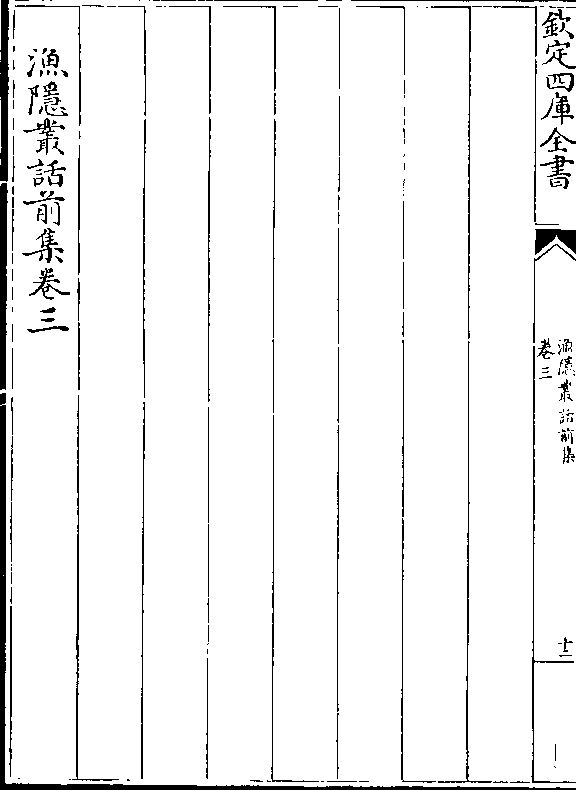 欽定四庫全書
漁隱叢話前集
卷三
十二
漁隱叢話前集卷三